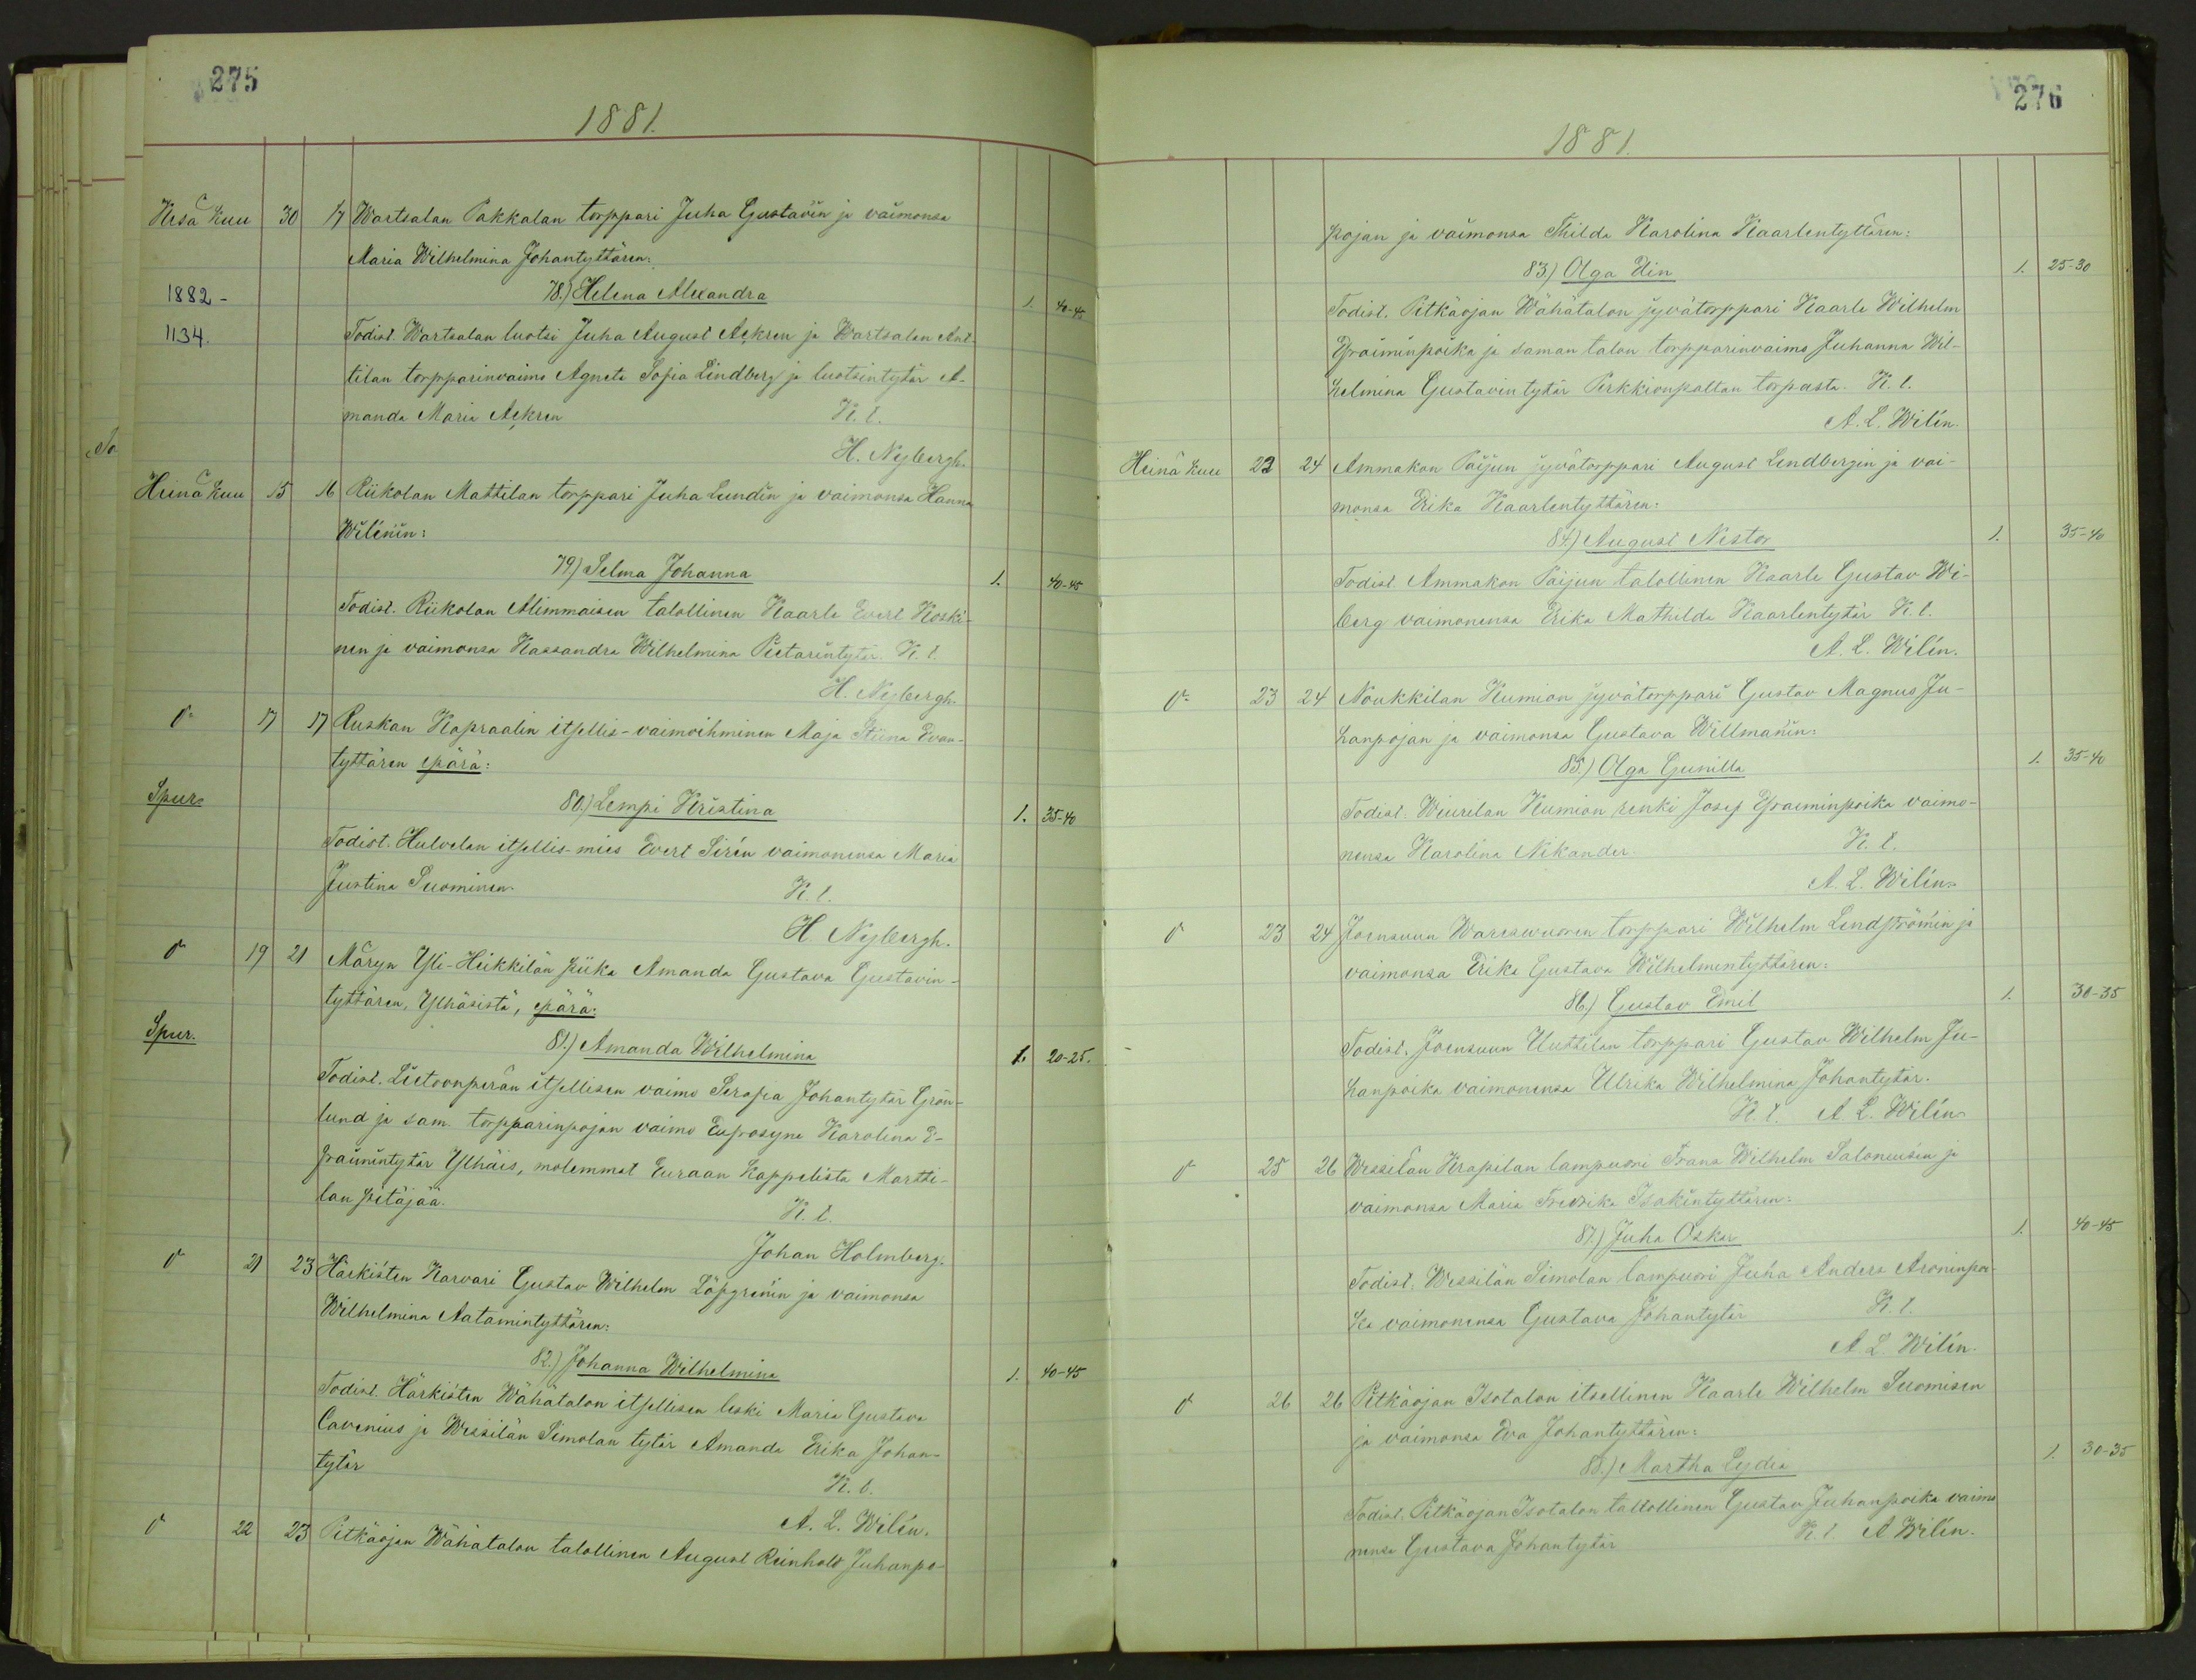 275
1881.
Kesä Kuu 30 17 Wartsalan Pakkalan torppari Juha Gustavin ja vaimonsa
Maria Wilhelmina Johantyttären:
1882 - 78.) Helena Alexandra 1. 40-45
1134. Todist. Wartsalan luotsi Juha August Aekren ja Wartsalan Ant-
tilan torpparinvaimo Agneta Sofia Lindberg ja luotsintytär A-
manda Maria Aekren K. t.
H. Nybergh.
Heinä Kuu 15 16 Riikolan Mattilan torppari Juha Lundin ja vaimonsa Hanna
Wilénin:
79.) Selma Johanna 1. 40-45
Todist. Riikolan Alimmaisen talollinen Kaarle Evert Koski-
nen ja vaimonsa Kassandra Wilhelmina Pietarintytär. K. t.
H. Nybergh.
17 17 Ruskan Kapraalin itsellis-vaimoihminen Maja Stiina Evan-
tyttären epärä:
Spur. 80.) Lempi Kristina 1. 35-40
Todist. Hulvelan itsellis-mies Evert Sirén vaimonensa Maria
Justina Suominen. K. t.
H. Nybergh.
19 21 Märyn Yli-Heikkilän piika Amanda Gustava Gustavin-
tyttären, Ylhäsistä, epärä:
Spur. 81.) Amanda Wilhelmina 1. 20-25.
Todist. Lietsonperän itsellisen vaimo Serafia Johantytär Grön-
lund ja sam. torpparinpojan vaimo Eufrosyne Karolina E-
fraimintytär Ylhäis, molemmat Euraan Kappelista Martti-
lan pitäjää. K. t.
Johan Holmberg.
21 23 Härkisten Karvari Gustav Wilhelm Löfgrenin ja vaimonsa
Wilhelmina Aatamintyttären:
82.) Johanna Wilhelmina 1. 40-45
Todist. Härkisten Wähätalon itsellisen leski Maria Gustava
Cavenius ja Wessilän Simolan tytär Amanda Erika Johan-
tytär K. t.
A. L. Wilén.
22 23 Pitkäojan Wähätalon talollinen August Reinhold Juhanpo-
276
1881.
pojan ja vaimonsa Thilda Karolina Kaarlentyttären:
83.) Olga Elin 1. 25-30
Todist. Pitkäojan Wähätalon jyvätorppari Kaarle Wilhelm
Efraiminpoika ja saman talon torpparinvaimo Juhanna Wil-
helmina Gustavintytär Perkkionpaltan torpasta. K. t.
A. L. Wilén.
Heinä kuu 22 24 Ammakon Paijun jyvätorppari August Lindbergin ja vai-
monsa Erika Kaarlentyttären:
84.) August Nestor 1. 35-40
Todist Ammakon Paijun talollinen Kaarle Gustav Wi-
berg vaimonensa Erika Mathilda Kaarlentytär K. t.
A. L. Wilén.
23 24 Noukkilan Kumion jyvätorppari Gustav Magnus Ju-
hanpojan ja vaimonsa Gustava Willmanin:
85.) Olga Gunilla 1. 35-40
Todist. Wiurelan Kumion renki Josef Efraiminpoika vaimo-
nensa Karolina Nikander. K. t.
A. L. Wilén.
23 24 Joensuun Wareswuoren torppari Wilhelm Lindströmin ja
vaimonsa Erika Gustava Wilhelmintyttären:
86.) Gustav Emil 1. 30-35
Todist. Joensuun Uustilan torppari Gustav Wilhelm Ju-
hanpoika vaimonensa Ulrika Wilhelmina Johantytär.
K. t. A. L. Wilén.
25 26 Wessilän Krapilan lampuori Frans Wilhelm Saloniusin ja
vaimonsa Maria Fredrika Isakintyttären:
87.) Juha Oskar 1. 40-45
Todist. Wessilän Simolan lampuori Juha Anders Aroninpoi-
ka vaimonensa Gustava Johantytär K. t.
A L. Wilén.
26 26 Pitkäojan Isotalon itsellinen Kaarle Wilhelm Suomisen
ja vaimonsa Eva Johantyttären:
88.) Martha Lydia 1. 30-35
Todist. Pitkäojan Isotalon tallollinen Gustav Juhanpoika vaimo
nensa Gustava Johantytär K. t. A Wilén.